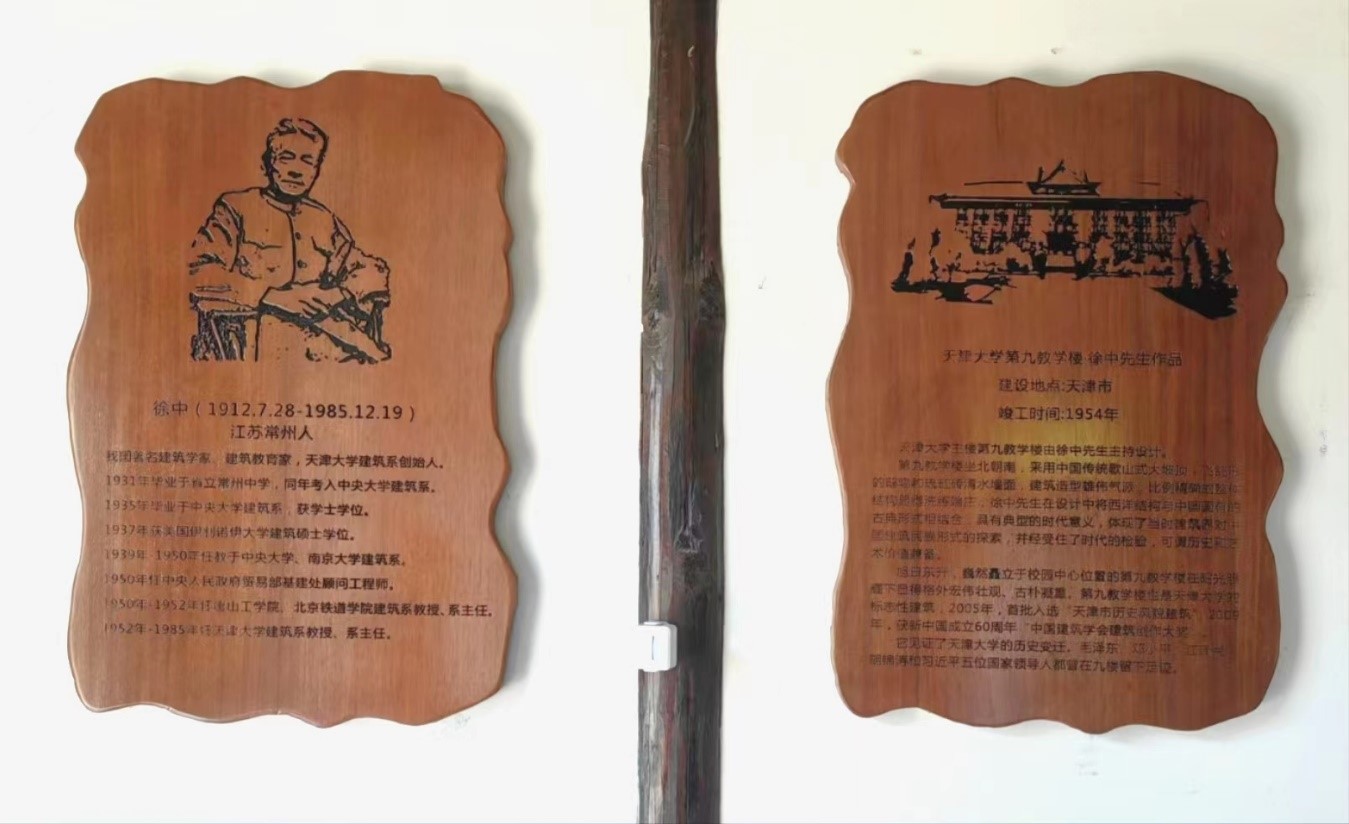 徐中（1912.7.28-1985.12.19）
江苏常州人
我国著名建筑学家、建筑教育家，天津大学建筑系创始人。
1931年毕业于省立常州中学，同年考入中央大学建筑系。
1935年毕业于中央大学建筑系，获学士学位。
1937年获美国伊利诺伊大学建筑硕士学位。
1939年-1950年任教于中央大学、南京大学建筑系。
1950年任中央人民政府贸易部基建处顾问工程师。
1950年-1952年任唐山工学院、北京铁道学院建筑系教授、系主任。
1952年-1985年任天津大学建筑系教授、系主任。
天津大学第九教学楼·徐中先生作品
建设地点:天津市
竣工时间:1954年
天津大学主楼第九教学楼由徐中先生主持设计。
第九教学楼坐北朝南，采用中国传统歇山式大坡顶，
的砖瓦清水墙面，建筑造型雄伟气派，比例
结构，徐中先生在设计中将西洋结构与中国固有的
古典形式相结合，具有典型的时代意义，体现了当时建筑界对中
国建筑民族形式的探索，并经受住了时代的检验，可谓历史和艺
术价值兼备。
旭日东升，巍然矗立于校园中心位置的第九教学楼在阳光照
耀下显得格外宏伟壮观、古朴凝重。第九教学楼也是天津大学的
标志性建筑，2005年，首批入选“天津市历史风貌建筑”，2009
年，获新中国成立60周年“中国建筑学会建筑创作大奖”。
它见证了天津大学的历史变迁，毛泽东、邓小平、江泽民、
胡锦涛和习近平五位国家领导人都曾在九楼留下足迹。